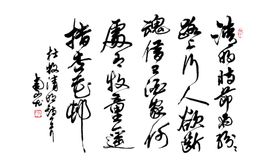 清明時節雨紛紛
路上行人欲斷
魂借問酒家何
處有牧童遥
指杏花邨
杜牧清明詩